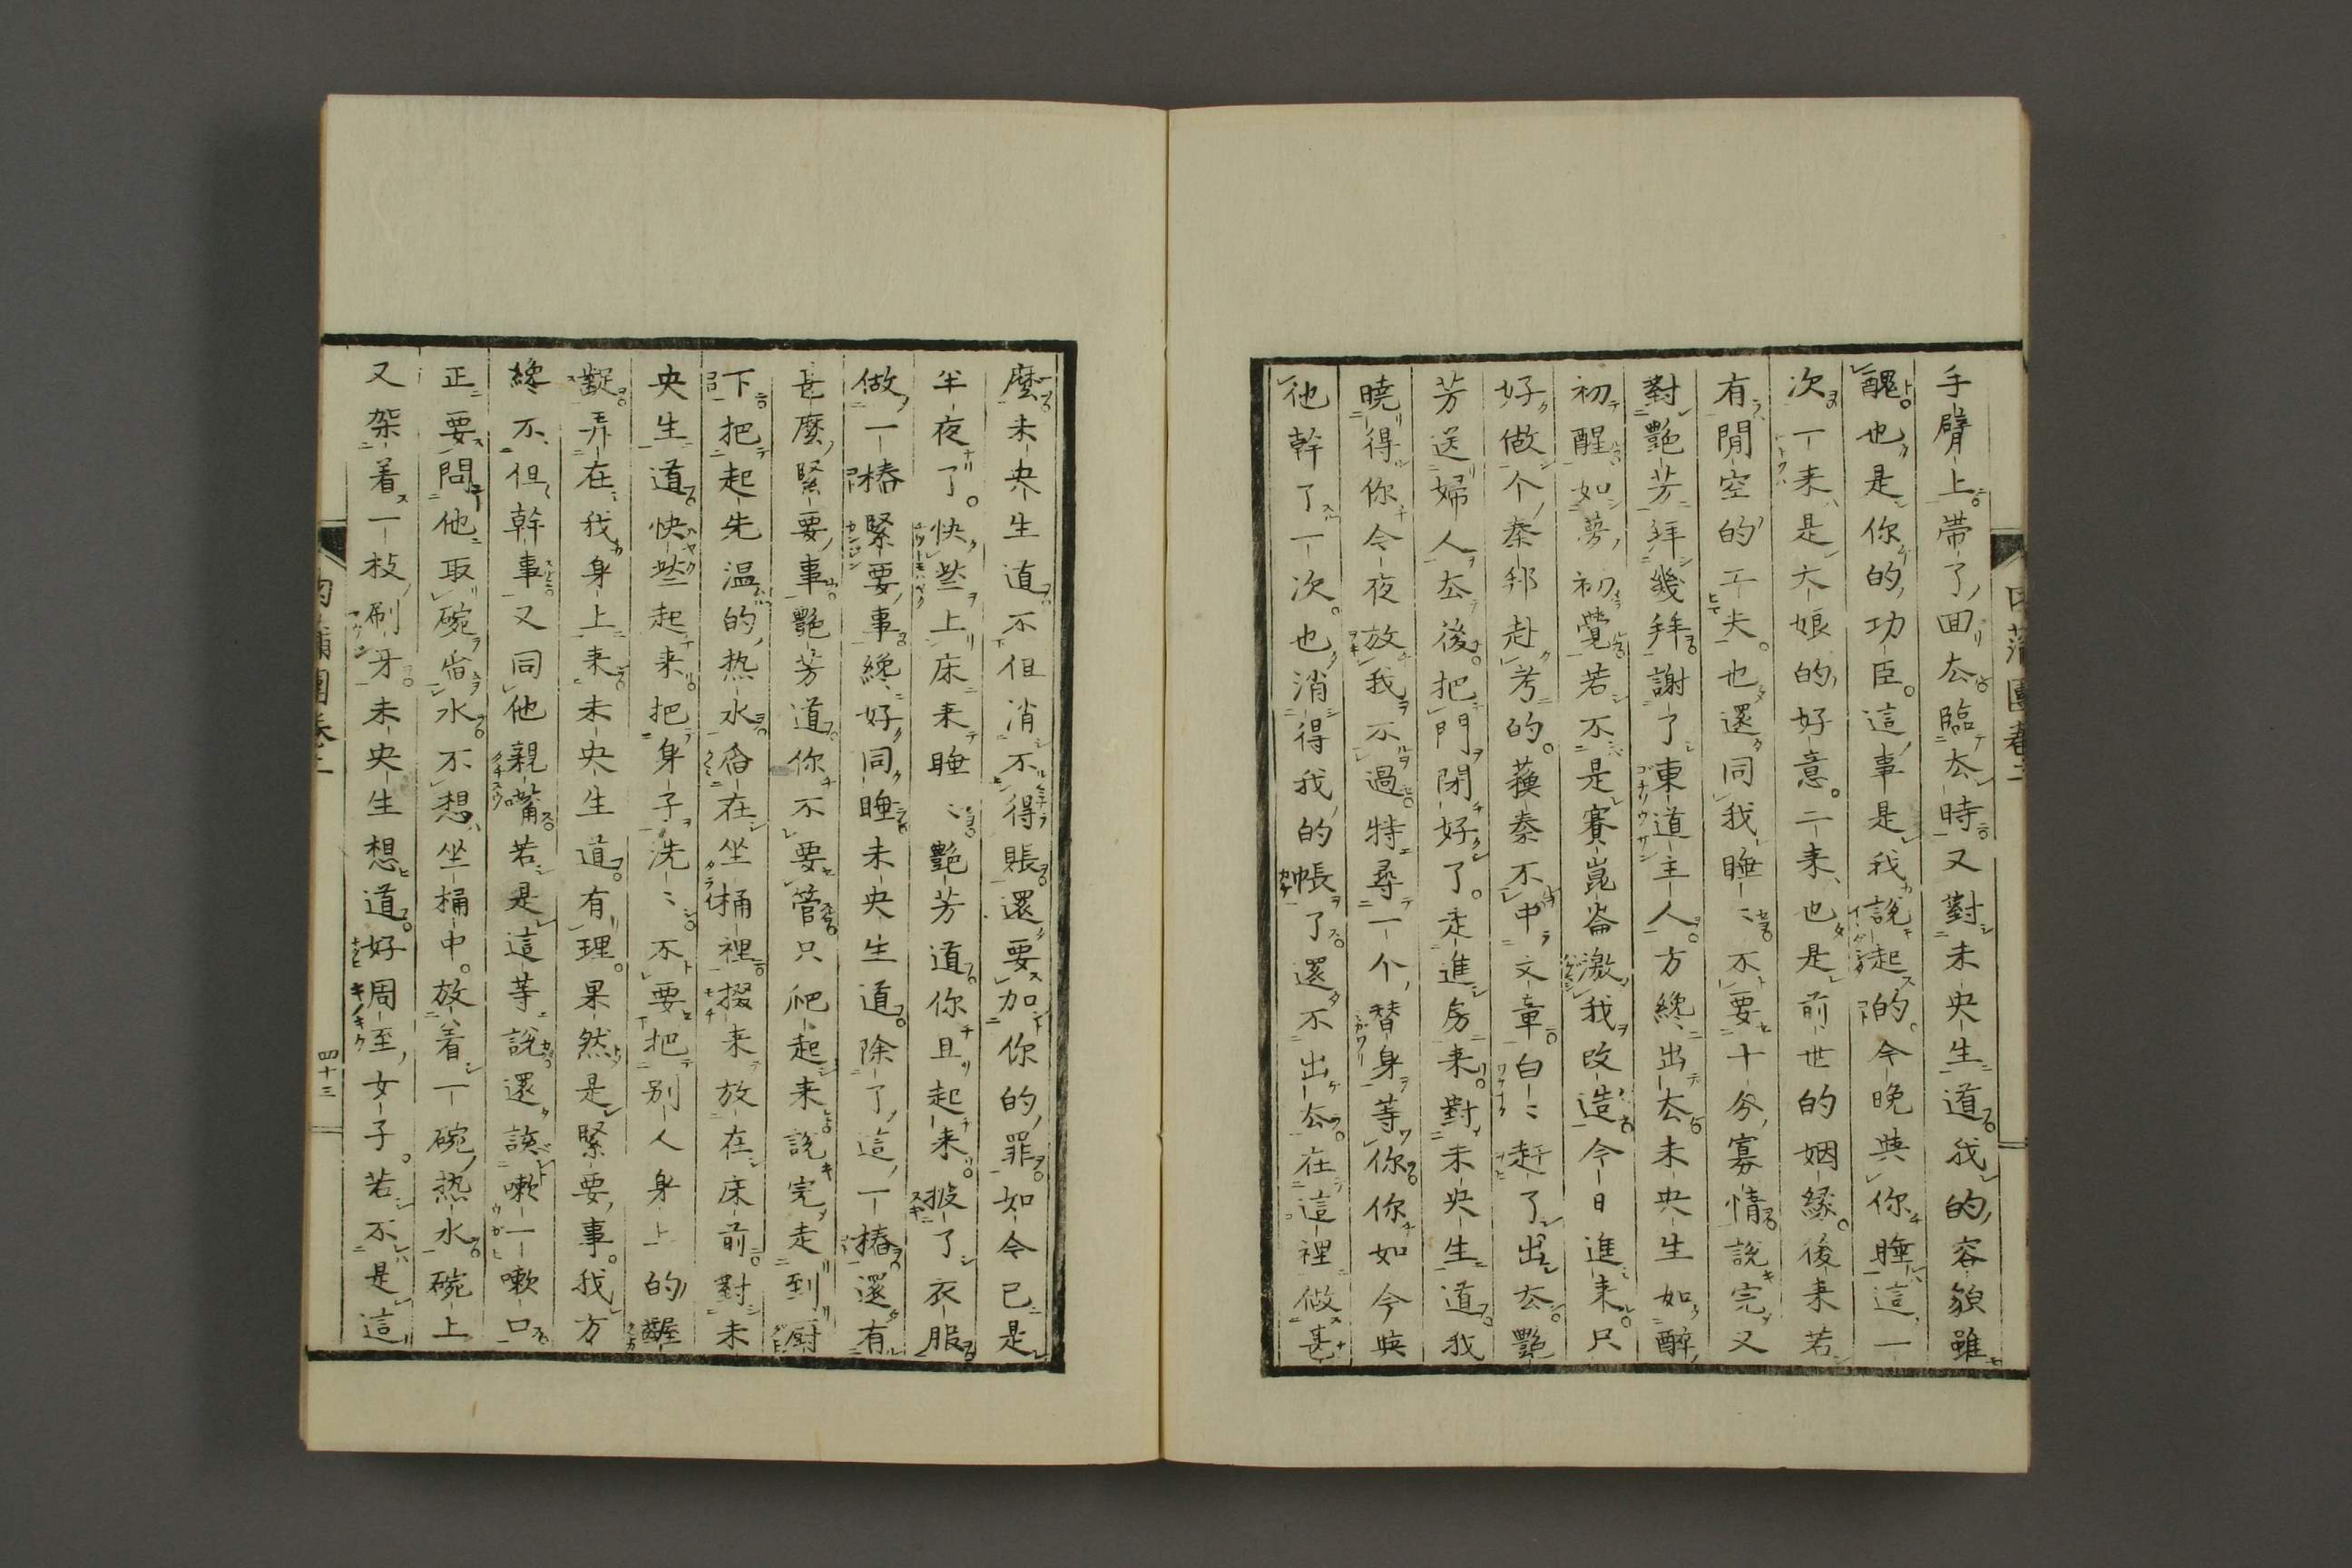 肉蒲團卷二
手臂上帶了回厺臨厺時又對未央生道我的容貌雖
醜也是你的功臣。這事是我說起的。今晚與你睡這一
次一来是大娘的好意。二来也是前世的姻縁。後来若
有閒空的工夫。也還同我睡〻不要十分寡情說完又
對艶芳拜幾拜謝了東道主人。方纔出厺未央生如醉
初醒如夢初覺若不是賽崑崙激我改造今日進来只
好做个秦邦赴考的。蘓秦不中文章白〻赶了出厺。艶
芳送婦人厺後。把門閉好了。走進房来對未央生道我
曉得你今夜放我不過特尋一个替身等你你如今與
他幹了一次。也消得我的帳了還不出厺在這裡做甚
麼未央生道不但消不得賬還要加你的罪如今已是
半夜了。快些上床来睡〻艶芳道你且起来。披了衣服
做一樁緊要事纔好同睡未央生道。除了這一樁還有
甚麼緊要事。艶芳道你不要管只爬起来說完走到厨
下把起先温的热水舀在坐桶裡掇来放在床前。對未
央生道快些起来把身子洗〻不要把别人身上的齷
齪弄在我身上来未央生道有理。果然是緊要事。我方
纔不但幹事又同他親嘴若是這等說還該嗽一嗽口
正要問他取碗舀水不想坐桶中。放着一碗热水碗上
又架着一枝刷牙。未央生想道。好周至女子。若不是這
肉蒲團卷二
四十三